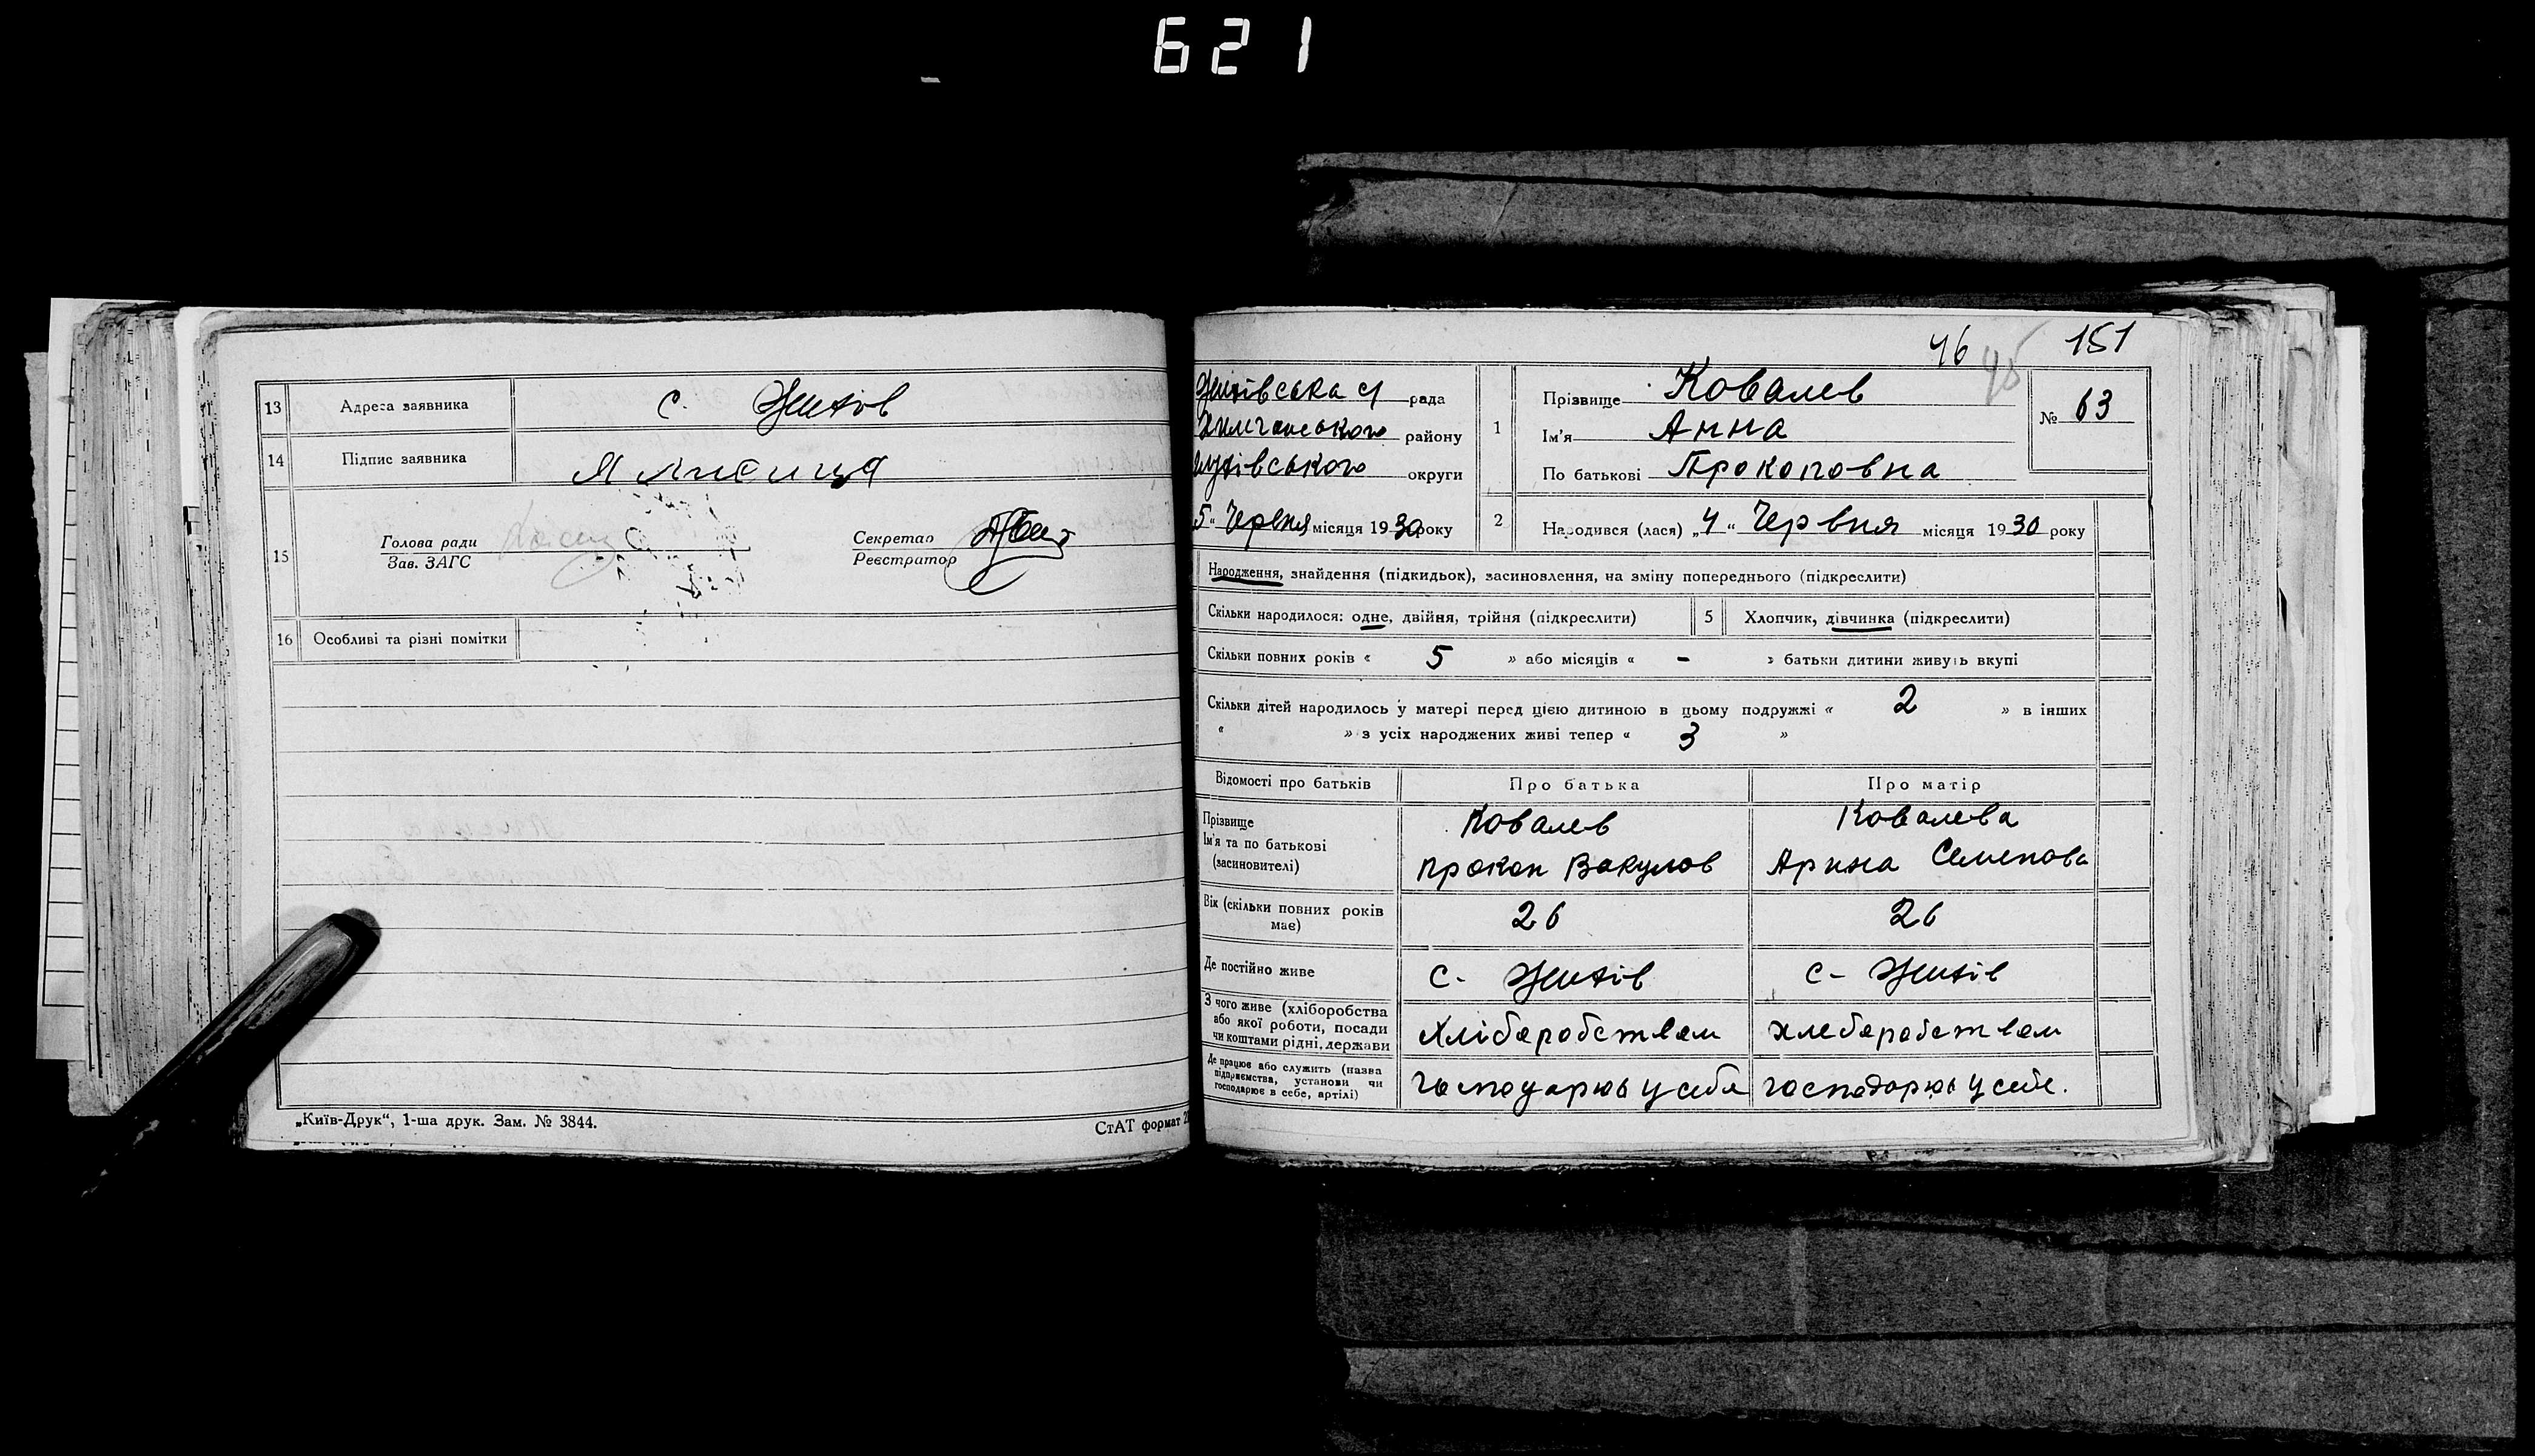 621
13 Адреса заявника с. Жихів
14 Підпис заявника
15 Голова ради
Зав. ЗАГС
Секретар
Реєстратор
16 Особливі та різні помітки
„Київ-Друк“, 1-ша друк. Зам. № 3844.
СтАТ формат
46 45 151
Жихівська с/ рада
району
округи
5 " Червня місяця 1930 року
1 Прізвище Ковалев
Ім'я Анна
По батькові Прокоповна
№ 63
2 Народився (лася) „4 " Червня місяця 1930 року
Народження, знайдення (підкидьок), засиновлення, на зміну попереднього (підкреслити)
Скільки народилося: одне, двійня, трійня (підкреслити) 5 Хлопчик, дівчинка (підкреслити)
Скільки повних років « 5 » або місяців « - » батьки дитини живуть вкупі
Скільки дітей народилось у матері перед цією дитиною в цьому подружжі « 2 » в інших
« » з усіх народжених живі тепер « 3 »
Відомості про батьків Про батька Про матір
Прізвище Ковалев Ковалева
Ім'я та по батькові
(засиновителі) Прокоп Вакулов Арина Семенова
Вік (скільки повних років
має) 26 26
Де постійно живе с- Жихів с- Жихів
З чого живе (хліборобства
або якої роботи, посади
чи коштами рідні, держави хліборобством хлеборобством
Де працює або служить (назва
підприємства, установи чи
господарює в себе, артілі) господарює у себя господарює у себе.